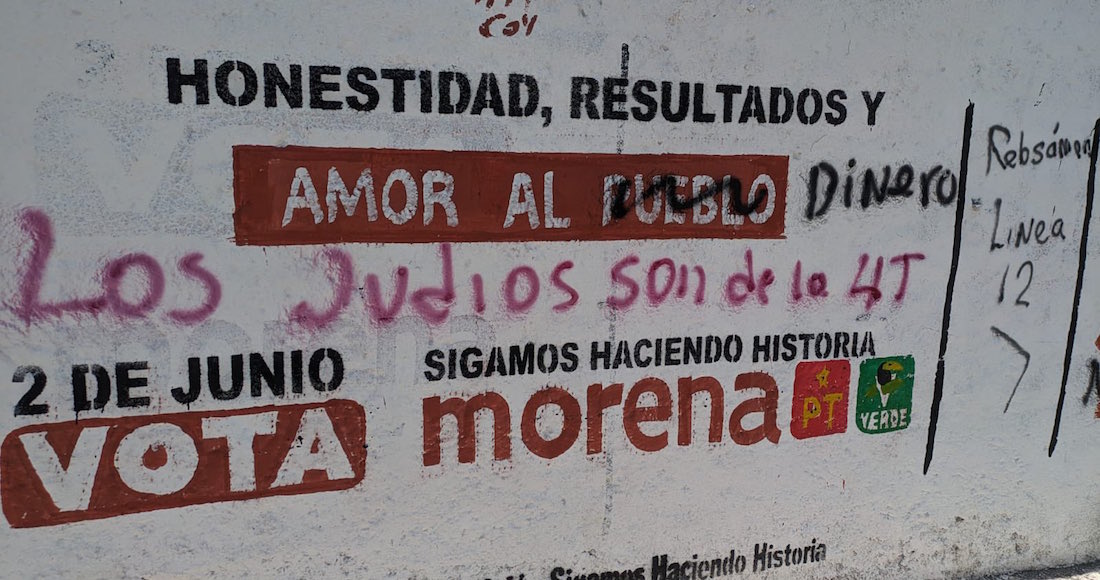 COY
HONESTIDAD, RESULTADOS Y
AMOR AL PUEBLO DINERO
LOS JUDIOS SON de la 4T
2 DE JUNIO
VOTA
SIGAMOS HACIENDO HISTORIA
morena PT VERDE
Rebsámen
Línea
12
Sigamos Haciendo Historia